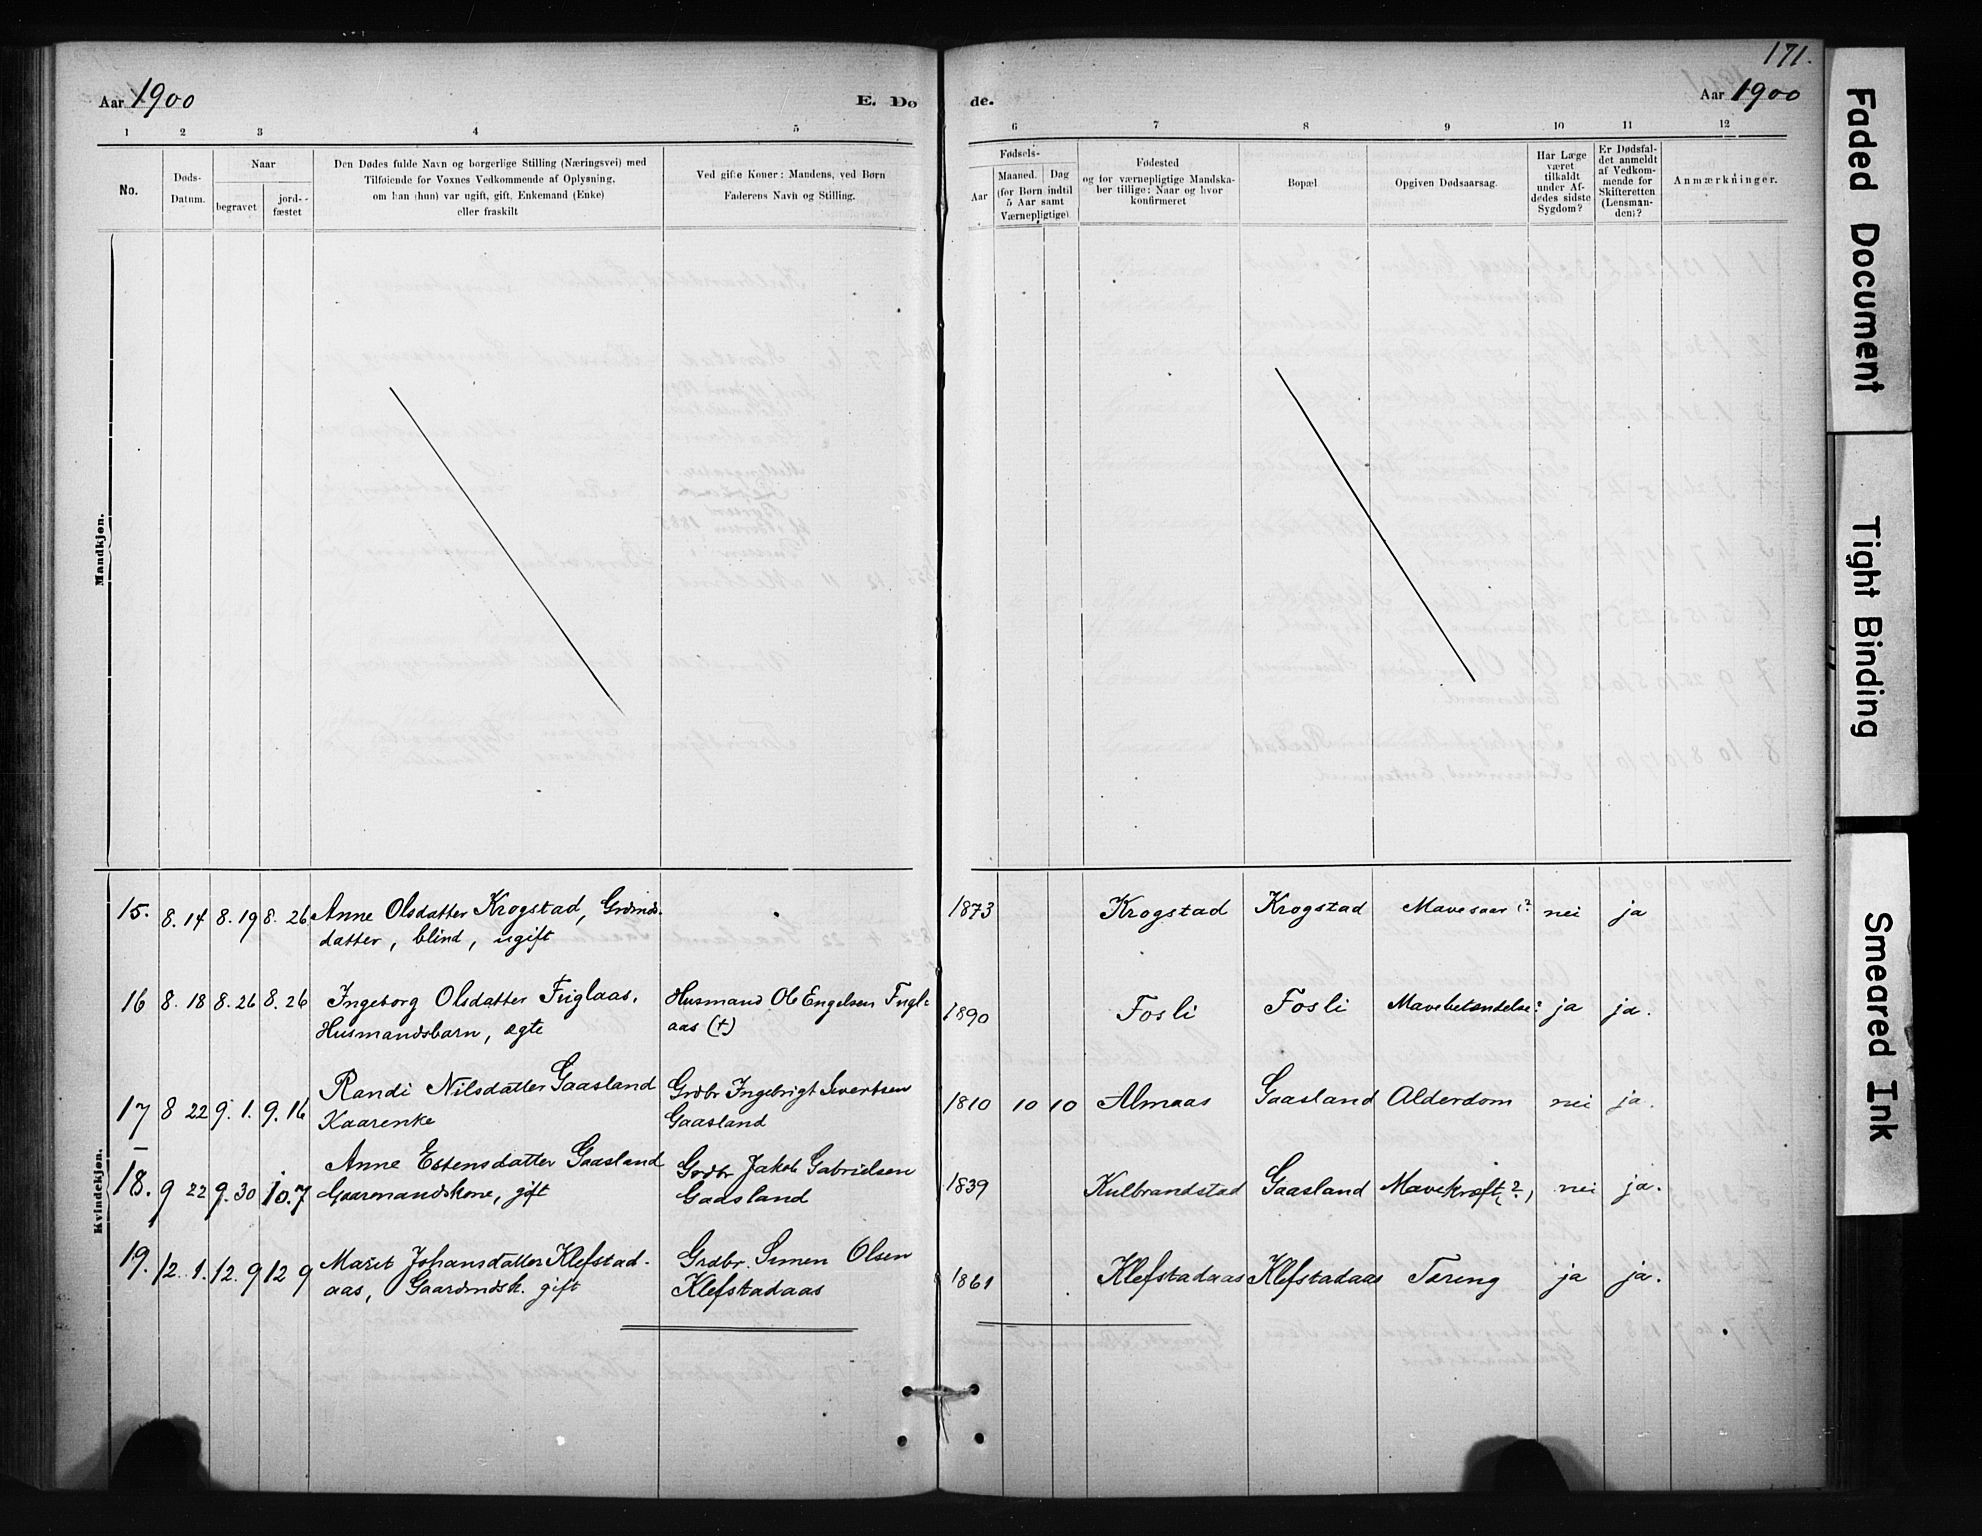 171.
Aar 1900
E. Dø
de.
Aar 1900
1 2 3 4 5
6 7 8 9 10 11 12
No.
Døds-
Datum.
Naar
begravet
jord-
fæstet
Den Dødes fulde Navn og borgerlige Stilling (Næringsvei) med
Tilføiende for Voxnes Vedkommende af Oplysning,
om han (hun) var ugift, gift, Enkemand (Enke)
eller fraskilt
Ved gifte Koner: Mandens, ved Børn
Faderens Navn og Stilling.
Fødsels-
Aar
Maaned.
Dag
(for Børn indtil
5 Aar samt
Værnepligtige).
Fødested
og for værnepligtige Mandska-
ber tillige: Naar og hvor
konfirmeret
Bopæl
Opgiven Dødsaarsag.
Har Læge
været
tilkaldt
under Af-
dødes sidste
Sygdom?
Er Dødsfal-
det anmeldt
af Vedkom-
mende for
Skifteretten
(Lensman-
den)?
Anmærkninger.
Mandkjøn.
Kvindekjøn.
15. 8. 14 8. 19 8. 26 Anne Olsdatter Krogstad, Grdmds.
datter, blind, ugift
1873 Krogstad Krogstad Mavesaar (? nei ja
16 8. 18 8. 26 8. 26 Ingeborg Olsdatter Fuglaas,
Husmandsbarn, ægte
Husmand Ole Engelsen Fugl-
aas (†)
1890 Fosli Fosli Mavebetændelse? ja ja.
17 8 22 9. 1. 9. 16 Randi Nilsdatter Gaasland
Kaarenke
Grdbr Ingebrigt Sivertsen
Gaasland
1810 10 10 Almaas Gaasland Alderdom nei ja.
18. 9 22 9. 30 10. 7 Anne Estensdatter Gaasland
Gaarmandskone, gift
Grdbr Jakob Gabrielsen
Gaasland
1839 Kulbrandstad Gaasland Mavekræft (?) nei ja.
19. 12. 1. 12. 9 12 9 Marit Johansdatter Klefstad-
aas, Gaardmdsk. gift
Grdbr. Simen Olsen
Klefstadaas
1861 Klefstadaas Klefstadaas Tæring ja ja.
Faded Document
Tight Binding
Smeared Ink